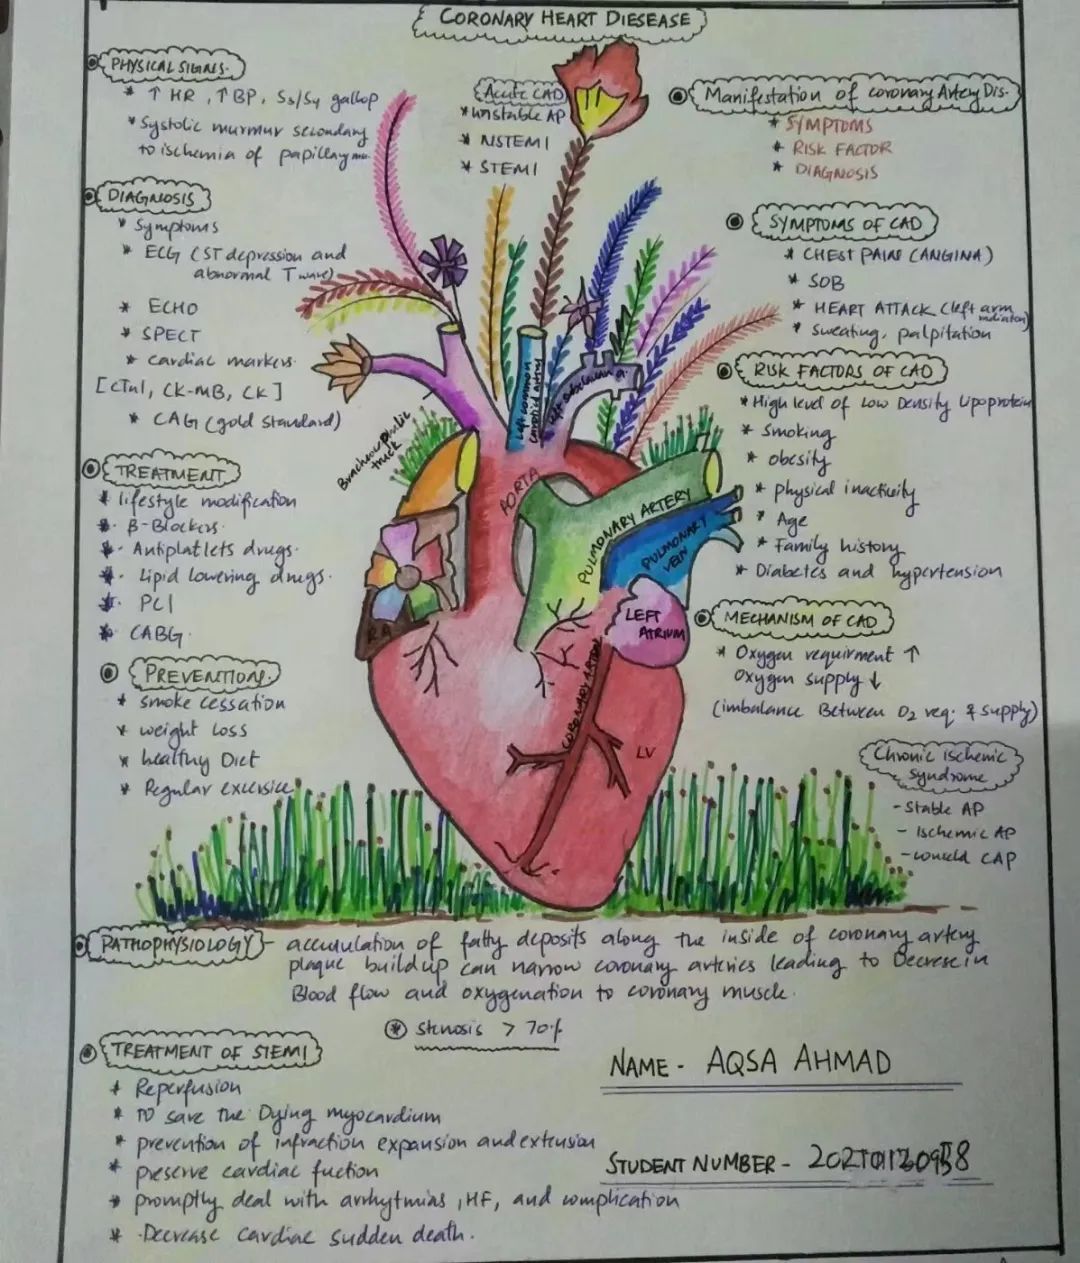 CORONARY HEART DIESEASE
PHYSICAL SIGNS.
* ↑ HR, ↑ BP, S3/S4 gallop
* Systolic murmur secondary
to ischemia of papillay
DIAGNOSIS
* Symptoms
* ECG (ST depression and
abnormal T wave)
* ECHO
* SPECT
* cardiac markers.
[cTnI, CK-MB, CK]
* CAG (gold standard)
TREATMENT
* lifestyle modification
* B-Blockers.
* Antiplatlets drugs.
* Lipid lowering drugs.
* PCI
* CABG.
PREVENTIONS.
* smoke cessation
* weight loss
* healthy Diet
* Regular excersice
Acute CAD
* unstable AP
* NSTEMI
* STEMI
Manifestation of coronary Artery Dis.
* SYMPTOMS
* RISK FACTOR
* DIAGNOSIS
SYMPTOMS OF CAD
* CHEST PAIN (ANGINA)
* SOB
* HEART ATTACK (left arm
* Sweating, palpitation
RISK FACTORS OF CAD
* High level of Low Density lipoprotein
* Smoking
* obesity
* physical inactivity
* Age
* Family history
* Diabetes and hypertension
MECHANISM OF CAD
* Oxygen requirment ↑
Oxygen supply ↓
(imbalance Between O2 req. & supply)
Chronic Ischemic
Syndrome
- Stable AP
- Ischemic AP
- CAP
truck
Left common
carotid artery
left subclavian a.
AORTA
PULMONARY ARTERY
PULMONARY
VEIN
LEFT
ATRIUM
RA
CORONARY ARTERY
LV
PATHOPHYSIOLOGY - accumulation of fatty deposits along the inside of coronary artery
plaque buildup can narrow coronary arteries leading to Decrese in
Blood flow and oxygenation to coronary muscle.
* stenosis > 70%
TREATMENT OF STEMI
* Reperfusion
* TO save the Dying myocardium
* prevention of infraction expansion and extension
* preserve cardiac fuction
* promptly deal with arrhytmias, HF, and complication
* Decrease cardiac sudden death.
NAME - AQSA AHMAD
STUDENT NUMBER -